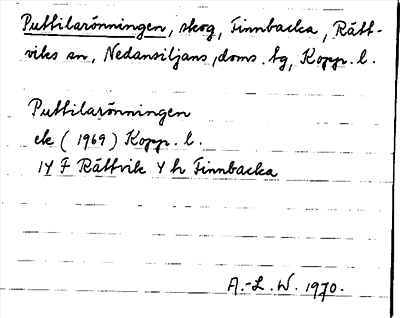 Puttilarönningen, skog, Finnbacka, Rätt-
viks sn, Nedansiljans, doms. tg, Kopp. l.
Puttilarönningen
ek (1969) Kopp. l.
14 F Rättvik 4 h Finnbacka
A.-L. W. 1970.